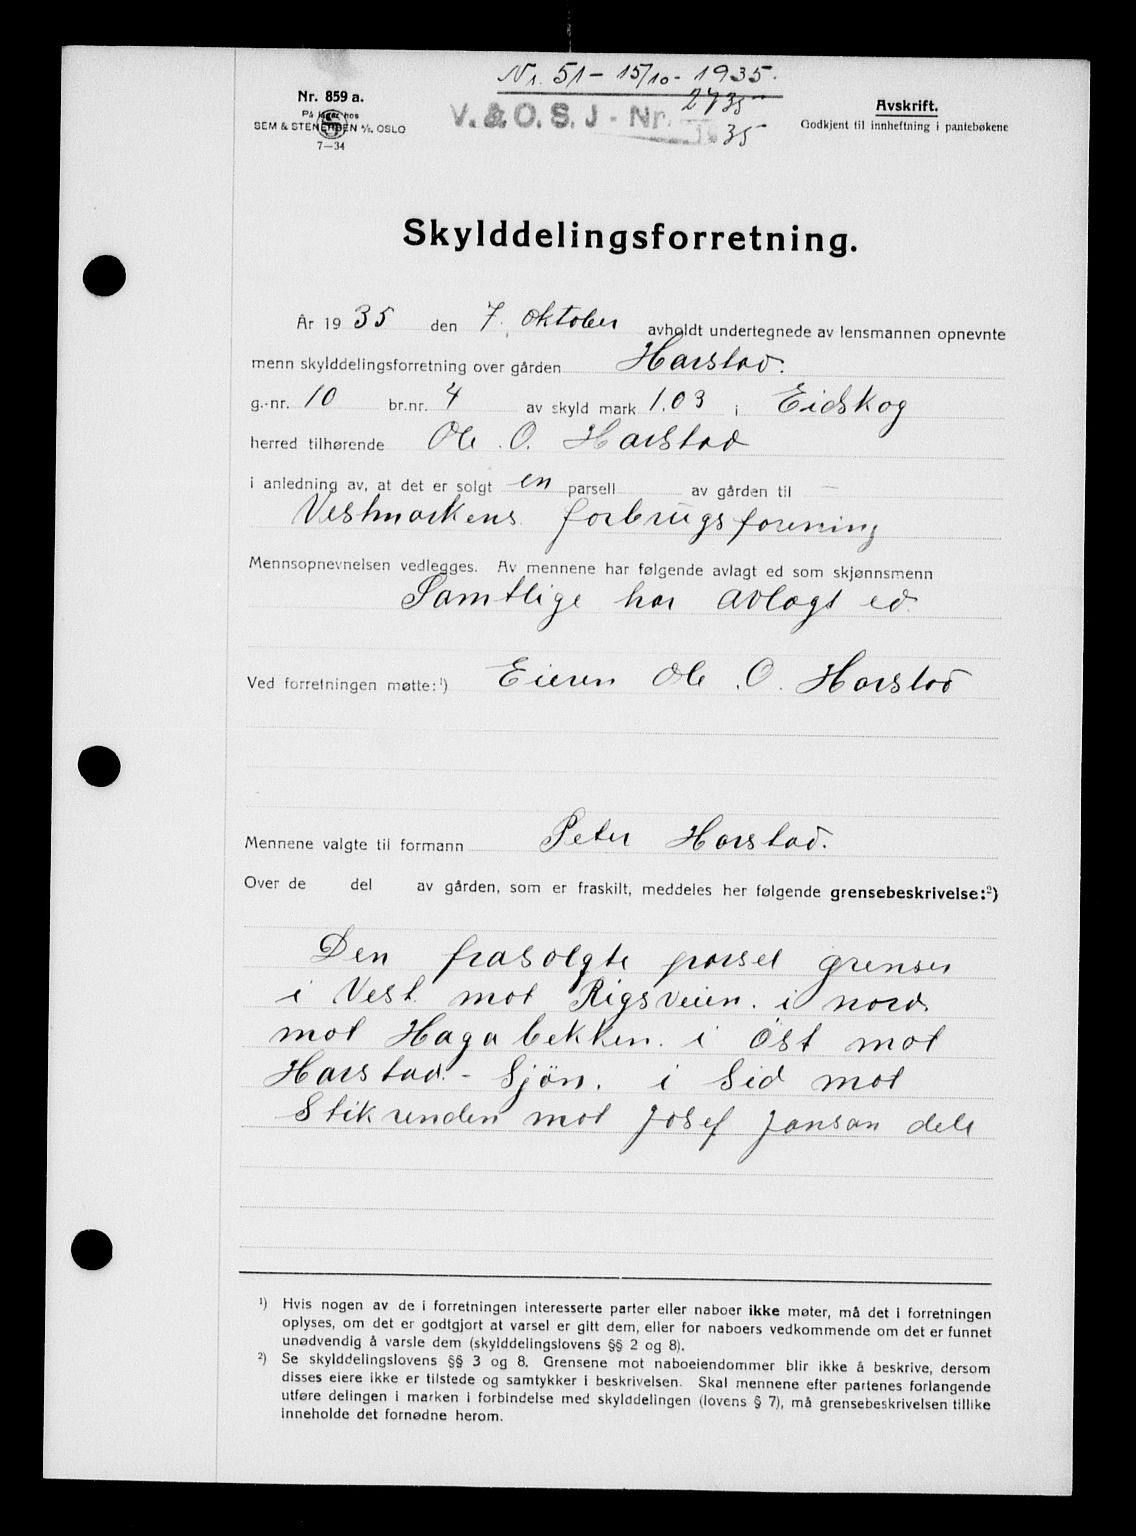 Nr. 51 - 15/10 - 1935.
Nr. 859 a.
På lager hos
SEM & STENERSEN A/S, OSLO
7—34
V. & O. S. J - Nr. 2735
1935
Avskrift.
Godkjent til innheftning i pantebøkene
Skylddelingsforretning.
År 1935 den 7. oktober avholdt undertegnede av lensmannen opnevnte
menn skylddelingsforretning over gården Harstad.
g.-nr. 10 br.nr. 4 av skyld mark 1.03 i Eidskog
herred tilhørende Ole O. Harstad
i anledning av, at det er solgt en parsell av gården til —
Vestmarkens forbrugsforening
Mennsopnevnelsen vedlegges. Av mennene har følgende avlagt ed som skjønnsmenn
Samtlige har avlagt ed.
Ved forretningen møtte:¹) Eieren Ole O. Harstad
Mennene valgte til formann Peter Harstad.
Over de del av gården, som er fraskilt, meddeles her følgende grensebeskrivelse:²)
Den frasolgte parsel grenser
i Vest mot Rigsveien. i nord.
mot Hagabekken. i öst mot
Harstad. - Sjön. i Sid mot
Stikrenden mot Josef Jansan dele
¹) Hvis nogen av de i forretningen interesserte parter eller naboer ikke møter, må det i forretningen
oplyses, om det er godtgjort at varsel er gitt dem, eller for naboers vedkommende om det er funnet
unødvendig å varsle dem (skylddelingslovens §§ 2 og 8).
²) Se skylddelingslovens §§ 3 og 8. Grensene mot naboeiendommer blir ikke å beskrive, dersom
disses eiere ikke er tilstede og samtykker i beskrivelsen. Skal mennene efter partenes forlangende
utføre delingen i marken i forbindelse med skylddelingen (lovens § 7), må grensebeskrivelsen tillike
inneholde det fornødne herom.